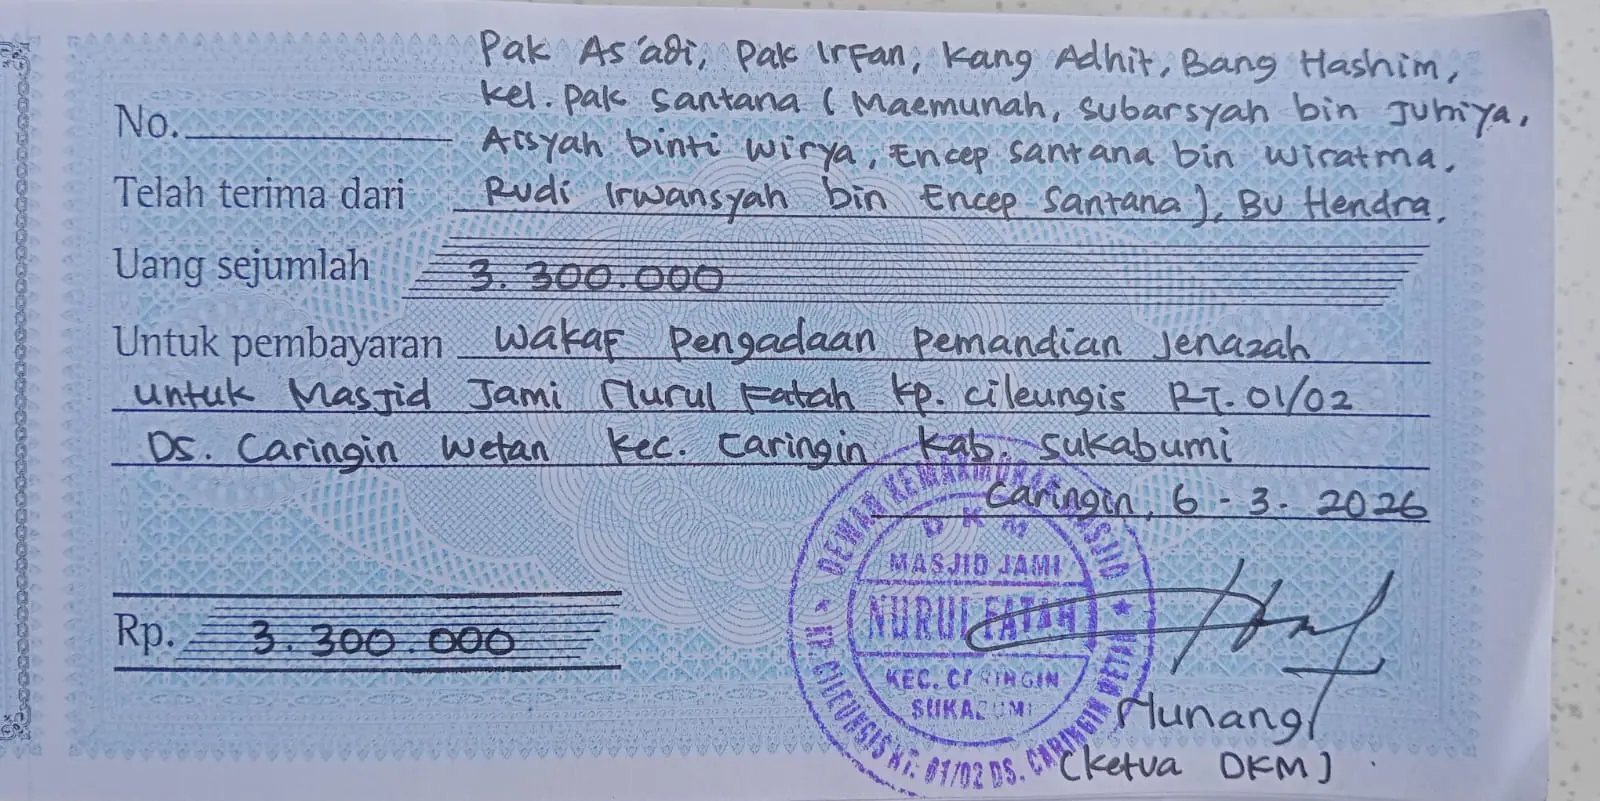 Pak As'adi, Pak Irfan, Kang Adhit, Bang Hashim,
Kel. Pak Santana (Maemunah, Subarsyah bin Juhiya,
Aisyah binti Wirya, Encep Santana bin Wiratma,
No.
Telah terima dari Rudi Irwansyah bin Encep Santana), Bu Hendra,
Uang sejumlah 3.300.000
Untuk pembayaran Wakaf Pengadaan Pemandian Jenazah
untuk Masjid Jami Nurul Fatah Kp. Cileungis RT. 01/02
Ds. Caringin Wetan Kec. Caringin Kab. Sukabumi
Caringin, 6 - 3. 2026
Rp. 3.300.000
DEWAN KEMAKMURAN MASJID
DKM
MASJID JAMI
NURUL FATAH
KEC. CARINGIN
SUKABUMI
KP. CILEUNGIS RT. 01/02 DS. CARINGIN WETAN
Nunang
(Ketua DKM)